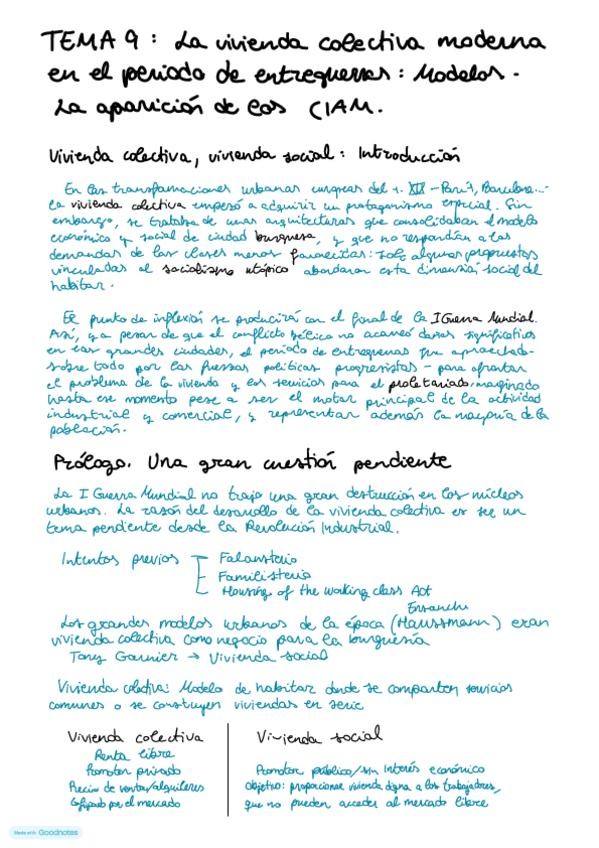 TEMA 9: La vivienda colectiva moderna
en el periodo de entreguerras: Modelos.
La aparición de los CIAM.
Vivienda colectiva, vivienda social: Introducción
En las transformaciones urbanas europeas del s. XIX - París, Barcelona...-
la vivienda colectiva empezó a adquirir un protagonismo especial. Sin
embargo, se trataba de unas arquitecturas que consolidaban el modelo
económico y social de ciudad burguesa, y que no respondían a las
demandas de las clases menos favorecidas: solo algunas propuestas
vinculadas al socialismo utópico abordaron esta dimensión social del
habitar.
El punto de inflexión se producirá con el final de la I Guerra Mundial.
Así, y a pesar de que el conflicto bélico no acarreó daños significativos
en las grandes ciudades, el periodo de entreguerras fue aprovechado-
sobre todo por las fuerzas políticas progresistas - para afrontar
el problema de la vivienda y los servicios para el proletariado, marginado
hasta ese momento pese a ser el motor principal de la actividad
industrial y comercial, y representar además la mayoría de la
población.
Prólogo. Una gran cuestión pendiente
La I Guerra Mundial no trajo una gran destrucción en los núcleos
urbanos. La razón del desarrollo de la vivienda colectiva es ser un
tema pendiente desde la Revolución Industrial.
Intentos previos
Falansterio
Familisterio
Housing of the working class Act
Ensanche
Los grandes modelos urbanos de la época (Haussmann) eran
vivienda colectiva como negocio para la burguesía
Tony Garnier → Vivienda social
Vivienda colectiva: Modelo de habitar donde se comparten servicios
comunes o se construyen viviendas en serie
Vivienda colectiva
Renta libre
Promotor privado
Precio de venta/alquileres
fijado por el mercado
Vivienda social
Promotor público/sin interés económico
Objetivo: proporcionar vivienda digna a los trabajadores,
que no pueden acceder al mercado libre
Made with Goodnotes